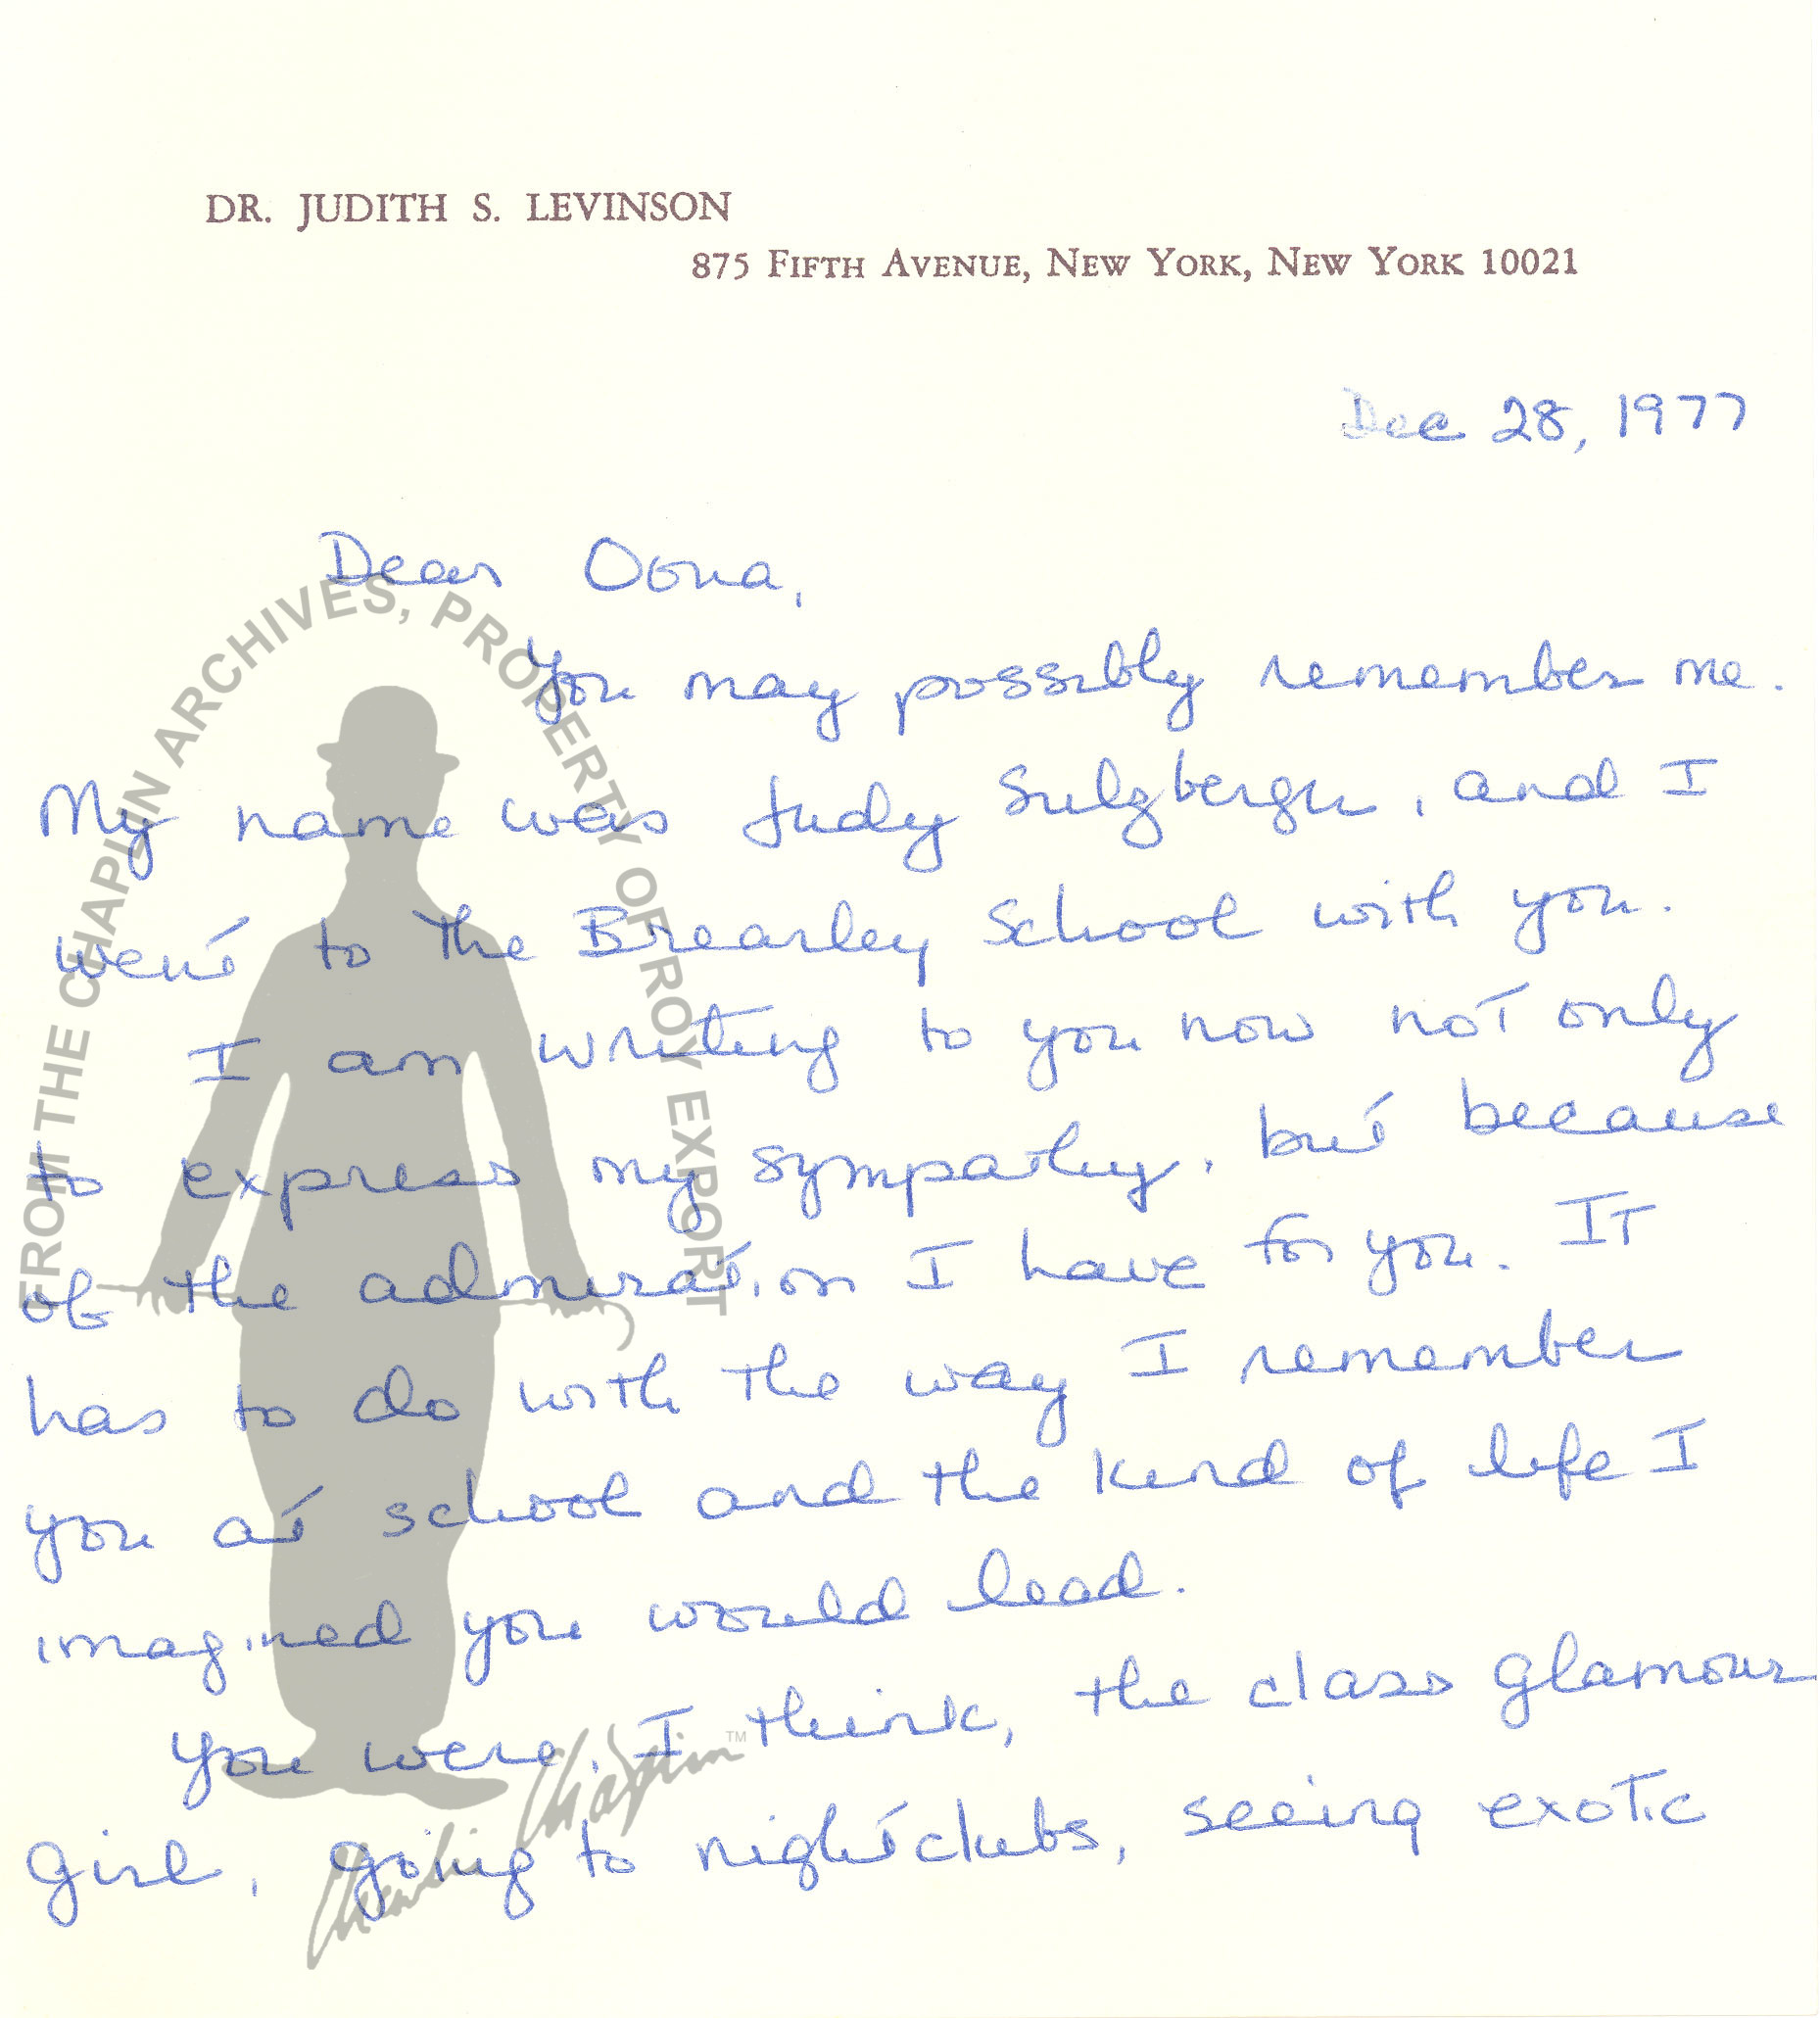 DR. JUDITH S. LEVINSON
875 FIFTH AVENUE, NEW YORK, NEW YORK 10021
Dec 28, 1977
Dear Oona,
You may possibly remember me.
My name was Judy Sulzberger, and I
went to the Brearley School with you.
I am writing to you now not only
to express my sympathy, but because
of the admiration I have for you. It
has to do with the way I remember
you at school and the kind of life I
imagined you would lead.
You were, I think, the class glamour
girl, going to nightclubs, seeing exotic
FROM THE CHAPLIN ARCHIVES, PROPERTY OF ROY EXPORT
Charlie Chaplin™